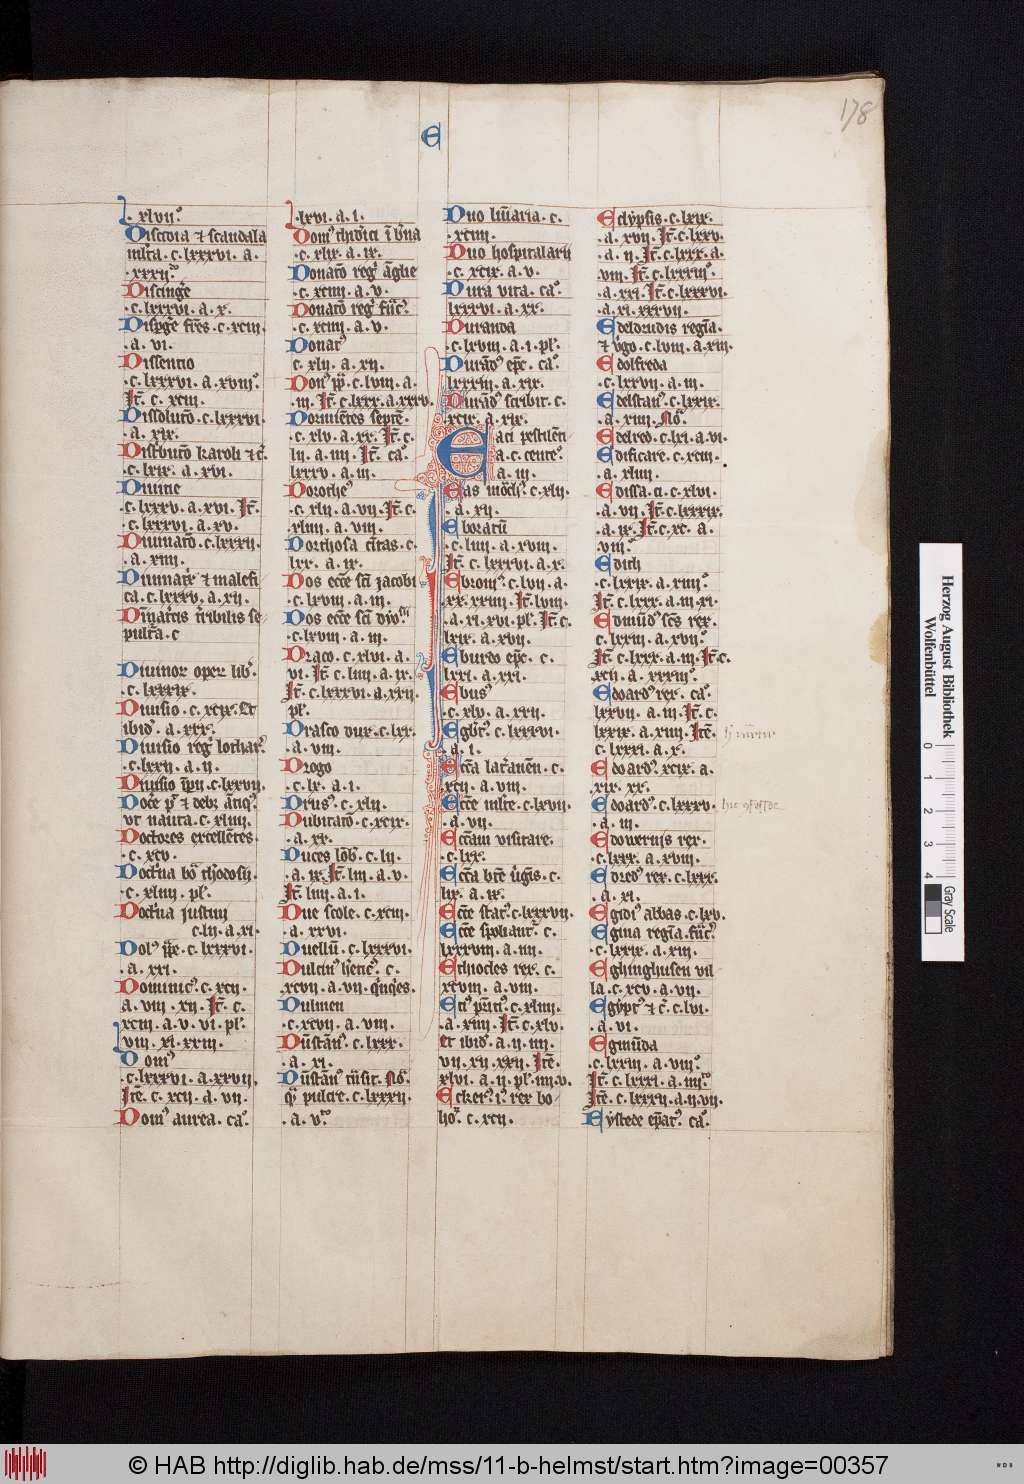 178
E
. xlvii.
Discordia ⁊ scandala
mlta. c. lxxxvi. a.
. xxxii.
Discinge
. c. lxxxvi. a. x.
Dispge fres. c. xciii.
. a. vi.
Dissentio
. c. lxxxvi. a. xviii.
It. c. xciii.
Dissoluto. c. lxxxvi
. a. xix.
Distbuto karoli ⁊ c.
. c. lxix. a. xvi.
Diuitie
. c. lxxxv. a. xvi. It.
. c. lxxxvi. a. xv.
Diuinato. c. lxxxii.
. a. xiiii.
Diuinare ⁊ malefi
ca. c. lxxxv. a. xii.
tribilis se
pulcra. c
Diuinor oper lib.
. c. lxxxix.
Diuisio. c. xcix. Et
ibid. a. xxx.
Diuisio reg lothar.
. c. lxxii. a. ii.
Diuisio ipii. c. lxxvii.
Doce p ⁊ debz atiq.
vt nauta. c. xliiii.
Doctores excelletes.
. c. xcv.
Doctna bo theodosii.
. c. xliiii. pl.
Doctna justini
c. lii. a. xi.
Dol ppe. c. lxxxvi.
. a. xxi.
Dominic. c. xcii.
a. viii. xii. It. c.
xciii. a. v. vi. pl.
viii. xi. xxiii.
Dom
. c. lxxxvi. a. xxvii.
Ite. c. xcii. a. vii.
Dom aurea. ca.
. lxvi. a. i.
Dom
. c. xlix. a. ix.
Donato reg aglie
. c. xciiii. a. v.
Donato reg
. c. xciiii. a. v.
Donat
c. xlii. a. xii.
Don pp. c. lviii. a.
. iii. It. c. lxxx. a. xxxv.
Dormietes septe.
. c. xlv. a. xx. It. c.
lii. a. iiii. It. ca.
lxxxv. a. iii.
Dorothe
. c. xlii. a. vii. It. c.
xliiii. a. viii.
Dorthosa citas. c.
lxx. a. ix.
Dos ecce sci jacobi
. c. lxviii. a. iii.
Dos ecce sci dyo
. c. lxviii. a. iii.
Draco. c. xlvi. a.
vi. It. c. liiii. a. ix.
It. c. lxxxvi. a. xxii.
pl.
Drasco dux. c. lxx.
. a. viii.
Drogo
. c. lx. a. i.
Drus. c. xlii.
Dubitato. c. xcix.
. a. xx.
Duces lob. c. lii.
. a. ix. It. liii. a. v.
It. liiii. a. i.
Due scole. c. xciii.
. a. xxvi.
Duellu. c. lxxxvi.
Dulcin
xcvii. a. vii.
Dulmen
. c. xcvii. a. viii.
Dustan. c. lxxx.
. a. xi.
Dustan
q pulcre. c. lxxxii.
. a. v.
Duo luiaria. c.
. xciiii.
Duo hospitalarii
. c. xcix. a. v.
Dura vita. ca.
lxxxvi. a. xx.
Duranda
. c. lxviii. a. i. pl.
Durad epc. ca.
lxxxiii. a. xix.
Durad scribit. c.
xcix. a. xix.
Eaci pestileti
a. c. cente.
a. iii.
Eas moch. c. xlii.
. a. xii.
Eboratu
. c. liii. a. xviii.
It. c. lxxxvi. a. x.
Ebroin. c. lvii. a.
xx. xxiiii. It. lviii.
. a. xi. xvi. pl. It. c.
lxix. a. xvii.
Eburdo epc. c.
lxxi. a. xxi.
Ebus
. c. xlv. a. xxii.
Egbt. c. lxxxvi.
. a. i.
Ecca lateranen. c.
xcii. a. viii.
Ecce mlte. c. lxvii.
. a. vii.
Eccam visitare.
. c. lxx.
Ecca bte vgis. c.
lix. a. ix.
Ecce stat. c. lxxxvii.
Ecce spoliant. c.
lxxxviii. a. iiii.
Ethiocles rex. c.
xcviii. a. viii.
Eci prici. c. xliiii.
. a. xiiii. It. c. xlv.
et ibid. a. ii. iiii.
vii. xii. xxii. Ite.
xlvi. a. ii. pl. iiii. v.
Ecker. i. rex bo
ho. c. xcii.
Eclypsis. c. lxix.
. a. xvii. It. c. lxxv.
. a. ii. It. c. lxxx. a.
viii. It. c. lxxxiii.
. a. xxi. It. c. lxxxvi.
. a. xi. xxxvii.
Edeldrudis regia.
⁊ vgo. c. lviii. a. xiii.
Edolfreda
. c. lxxvii. a. iii.
Edelstan. c. lxxix.
. a. xiiii. No.
Edelred. c. lxi. a. vi.
Edificare. c. xciii.
. a. xliiii.
Edissa. ci. c. xlvi.
. a. vii. It. c. lxxxix.
. a. ix. It. c. xc. a.
viii.
Edith
. c. lxxix. a. xiiii.
It. c. lxxx. a. iii. xi.
Edmud scs rex.
c. lxxiii. a. xvii.
It. c. lxxx. a. iii. It. c.
xcii. a. xxxiii.
Edoard rex. ca.
lxxvii. a. iii. It. c.
lxxix. a. xiiii. Ite.
c. lxxxi. a. x.
Edoard. xcix. a.
xix. xx.
Edoard. c. lxxxv.
. a. iii.
Edowernis rex.
. c. lxxx. a. xviii.
Edred rex. c. lxxx.
. a. xi.
Egidi abbas. c. lxv.
Egina regia
. c. lxxix. a. xiii.
Eghinghusen vil
la. c. xcv. a. vii.
Egypt ⁊ c. c. lvi.
. a. vi.
Egmuda
. c. lxxiii. a. viii.
It. c. lxxxi. a. iiii.
Ite. c. lxxxii. a. ii. vii.
Eystede epat. ca.
Herzog August Bibliothek
Wolfenbüttel
0 1 2 3 4
Gray Scale
© HAB http://diglib.hab.de/mss/11-b-helmst/start.htm?image=00357